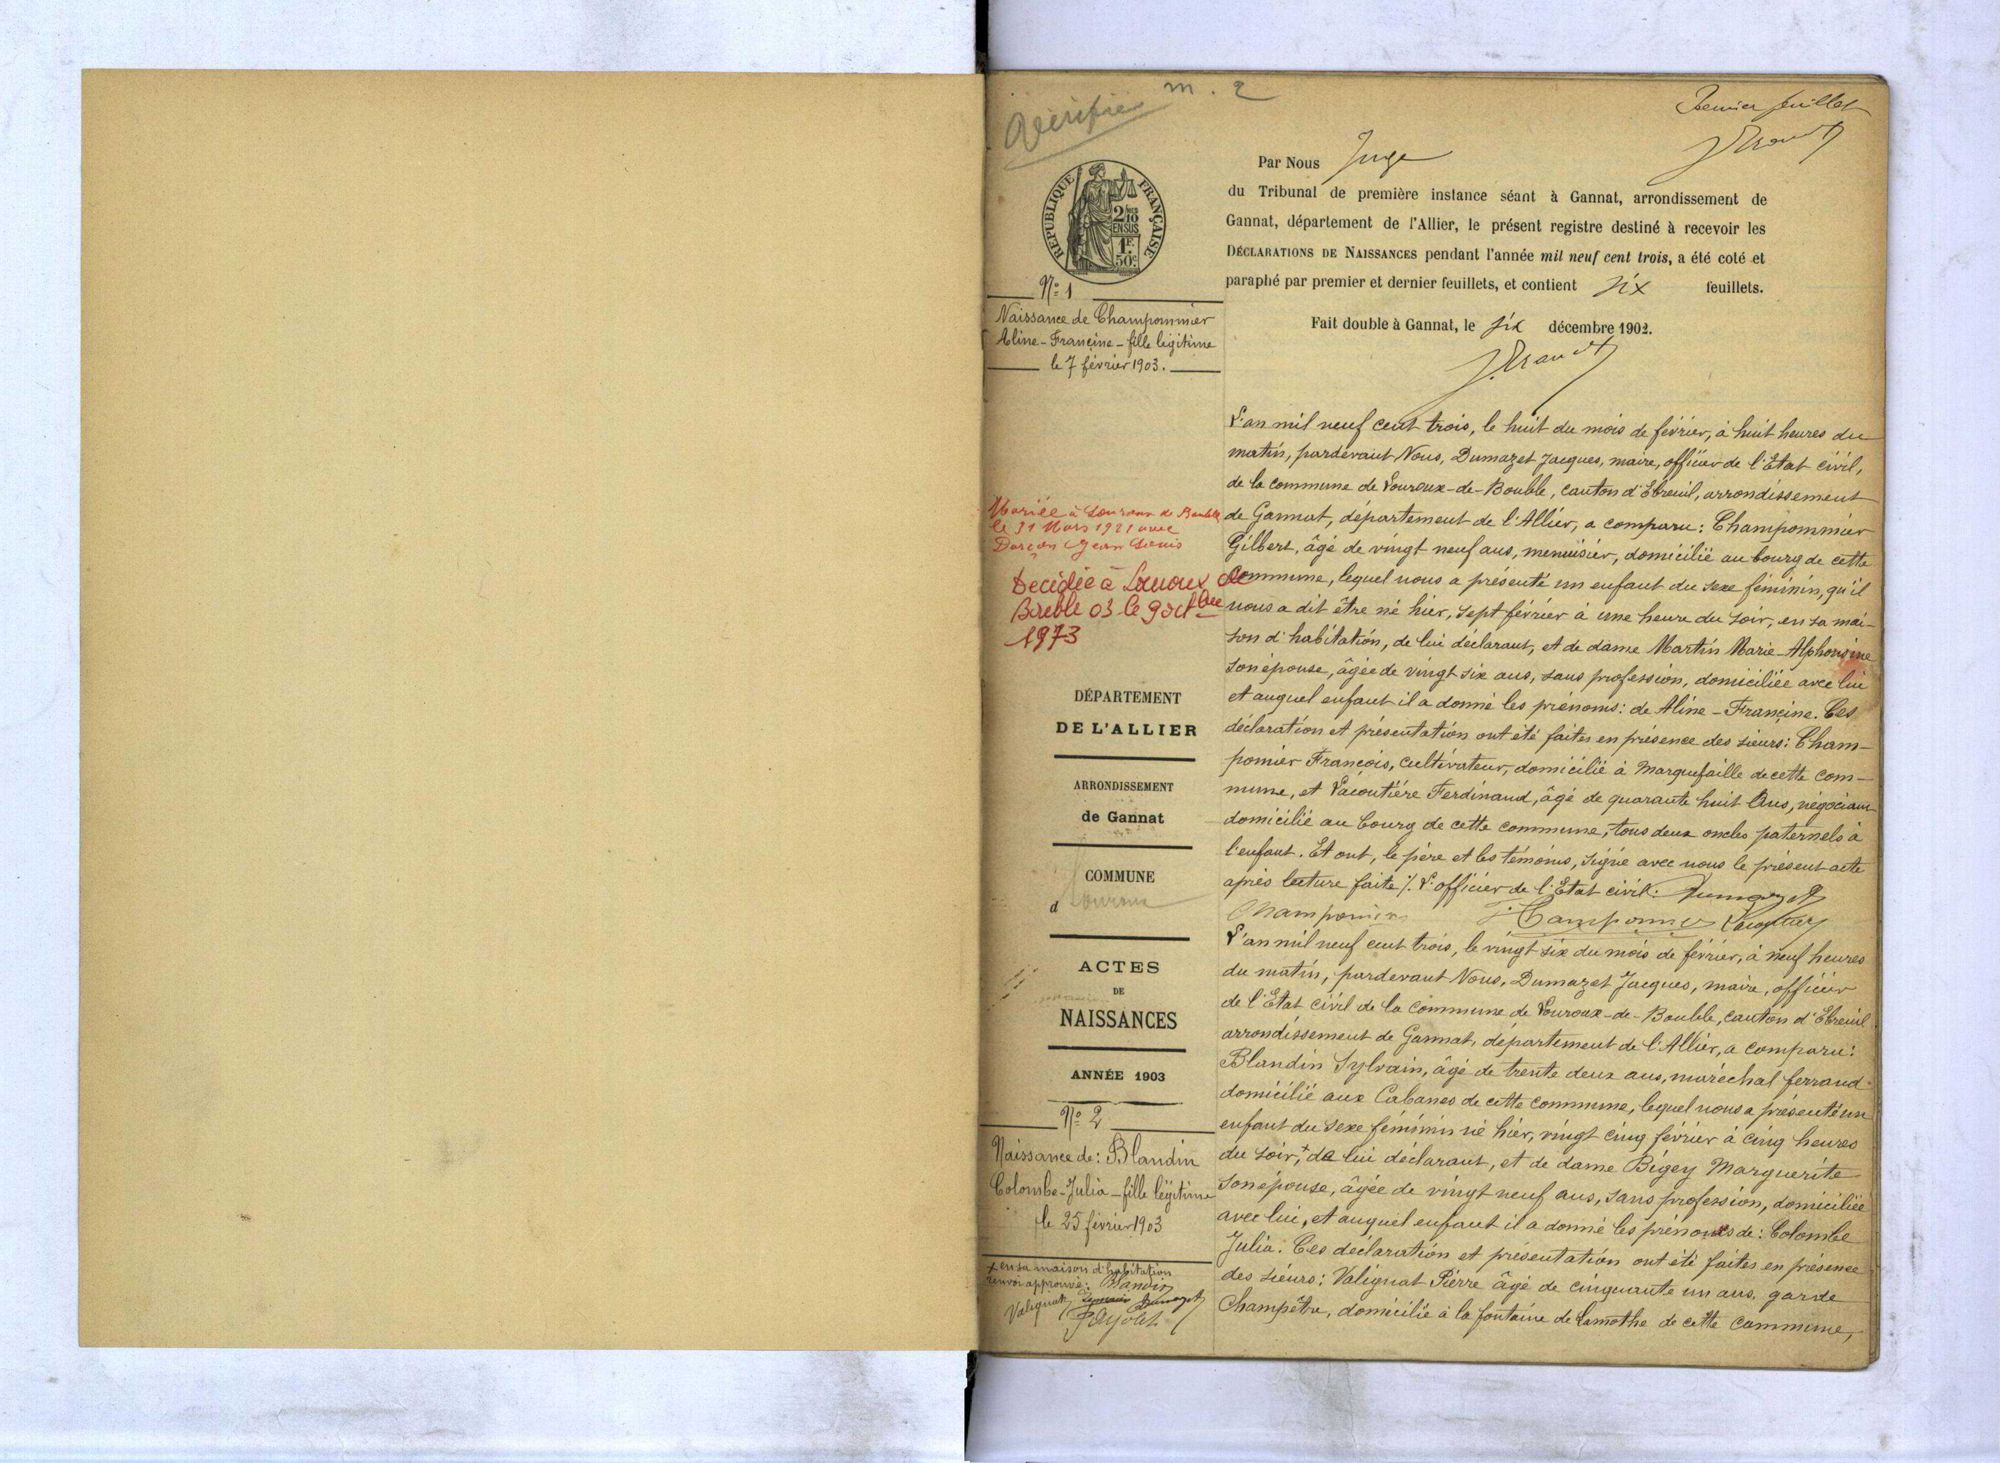 Vérifié m. 2
Premier feuillet
Par Nous Juge
du Tribunal de première instance séant à Gannat, arrondissement de
Gannat, département de l'Allier, le présent registre destiné à recevoir les
DÉCLARATIONS DE NAISSANCES pendant l'année mil neuf cent trois, a été coté et
paraphé par premier et dernier feuillets, et contient six feuillets.
Fait double à Gannat, le six décembre 1902.
RÉPUBLIQUE FRANÇAISE
2/10 EN SUS
1F. 50c.
N° 1
Naissance de Champommier
Aline-Françine - fille légitime
le 7 février 1903.
Mariée à Louroux de Bouble
le 31 Mars 1921 avec
Jean
Decédée à Louroux de
Bouble 03 le 9 octbre
1973
DÉPARTEMENT
DE L'ALLIER
ARRONDISSEMENT
de Gannat
COMMUNE
d Louroux
ACTES
DE
NAISSANCES
ANNÉE 1903
N° 2
Naissance de: Blandin
Colombe-Julia - fille légitime
le 25 février 1903
+ en sa maison d'habitation
renvoi approuvé: Blandin
Valignat Dumazet
L'an mil neuf cent trois, le huit du mois de février, à huit heures du
matin, pardevant Nous, Dumazet Jacques, maire, officier de l'Etat civil,
de la commune de Louroux-de-Bouble, canton d'Ebreuil, arrondissement
de Gannat, département de l'Allier, a comparu: Champommier
Gilbert, âgé de vingt neuf ans, menuisier, domicilié au bourg de cette
commune, lequel nous a présenté un enfant du sexe féminin, qu'il
nous a dit être né hier, sept février à une heure du soir, en sa mai-
son d'habitation, de lui déclarant, et de dame Martin Marie-Alphonsine
son épouse, âgée de vingt six ans, sans profession, domiciliée avec lui
et auquel enfant il a donné les prénoms: de Aline-Françine. Ces
déclaration et présentation ont été faites en présence des sieurs: Cham-
pomier François, cultivateur, domicilié à Marquefaille de cette com-
mune, et Lacoutière Ferdinand, âgé de quarante huit ans, négociant
domicilié au bourg de cette commune, tous deux oncles paternels à
l'enfant. Et ont, le père et les témoins, signé avec nous le présent acte
après lecture faite ./. L'officier de l'Etat civil: Dumazet
Champomier
L'an mil neuf cent trois, le vingt six du mois de février, à neuf heures
du matin, pardevant Nous, Dumazet Jacques, maire, officier
de l'Etat civil de la commune de Louroux-de-Bouble, canton d'Ebreuil
arrondissement de Gannat, département de l'Allier, a comparu:
Blandin Sylvain, âgé de trente deux ans, maréchal ferrand
domicilié aux Cabanes de cette commune, lequel nous a présenté un
enfant du sexe féminin né hier, vingt cinq février à cinq heures
du soir, + de lui déclarant, et de dame Bigey Marguerite
son épouse, âgée de vingt neuf ans, sans profession, domiciliée
avec lui, et auquel enfant il a donné les prénoms de: Colombe
Julia. Ces déclaration et présentation ont été faites en présence
des sieurs: Valignat Pierre âgé de cinquante un ans, garde
champêtre, domicilié à la fontaine de Lamothe de cette commune,